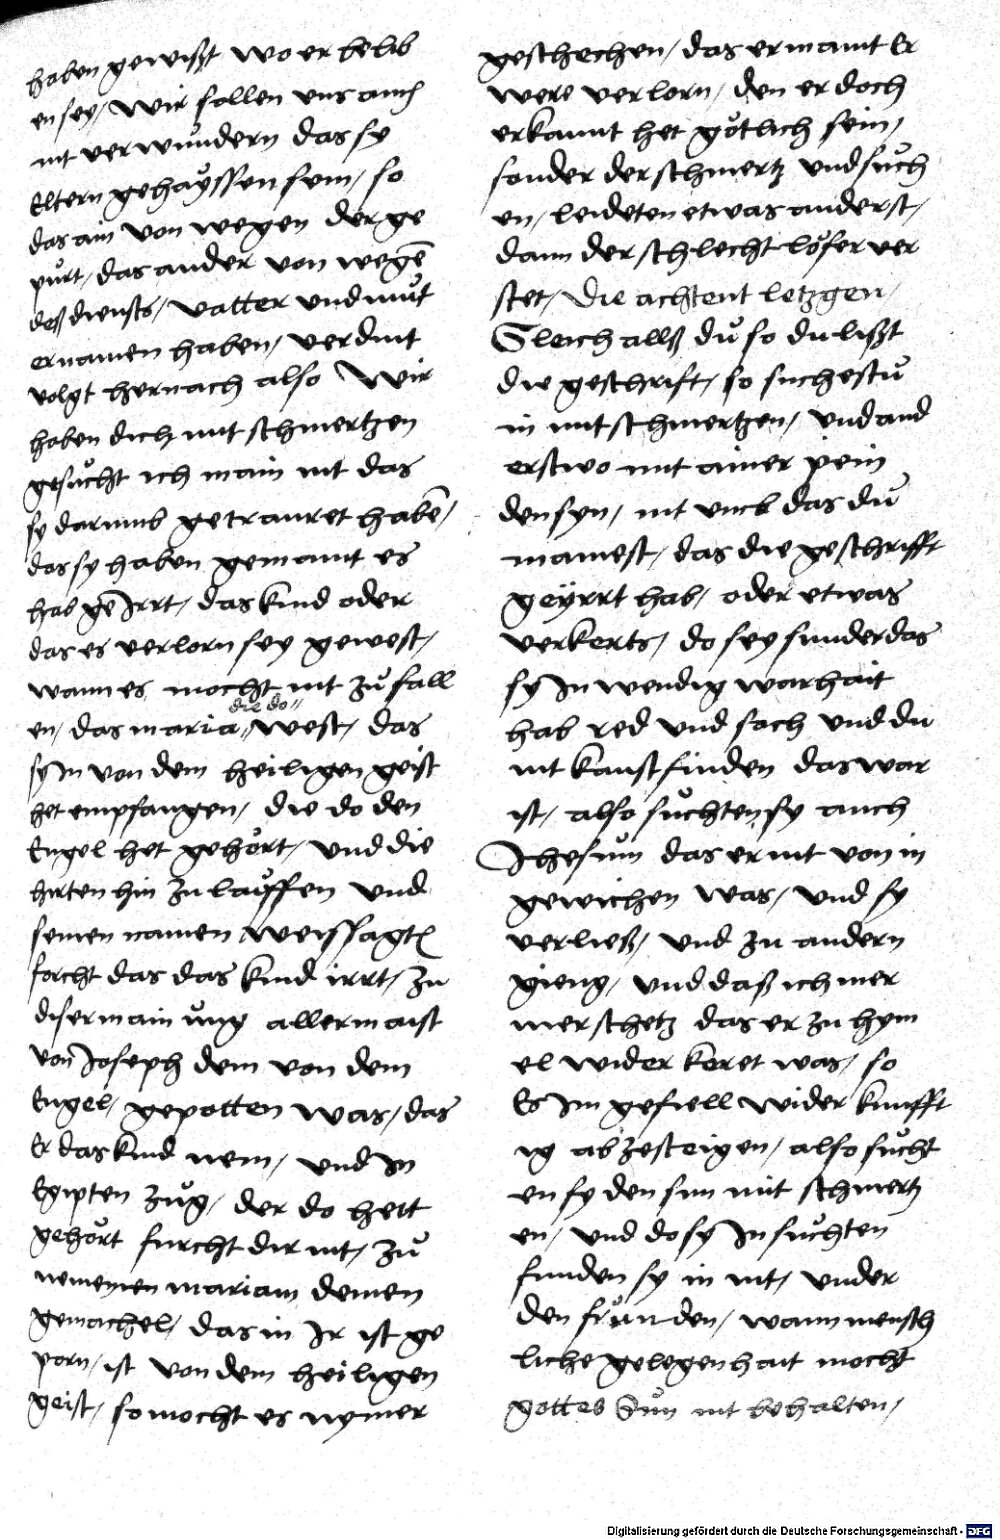 haben gewißt wo er belib
en sey/ Wir sollen vns auch
nit verwu̇ndern das sy
Eltern gehaÿssen seyn/ so
das ain von wegen der ge
pu̇rt/ das ander von wegē
deß diensts/ Vatter vnd mu̇t
er namen haben/ verdint
volgt hernach also Wir
haben dich mit schmertzen
gesu̇cht ich main nit das
sy darumb getrauret habē/
das sy haben gemaint es
hab gē Irrt/ das kind oder
das es verlorn sey gewest/
wann es mocht nit zu̇ fall
en/ das maria die do west/ das
sy In von dem heiligen geist
het empfangen/ die do den
Engel het gehört/ vnd die
hirten hin zu lauffen vnd
seinen namen weissagt
forcht das das kind irrt/ zu
diser mainung allermaist
von Joseph dem von dem
Engel/ gepotten was/ das
Er das kind nem/ vnd In
Egipten zu̇g/ der do hett
gehört furcht dir nit/ zu̇
nemenen mariam deinen
gemachel/ das in Ir ist ge
porn/ ist von dem heiligen
geist/ so mocht es nymer
geschechen/ das er maint Er
were verlorn/ den er doch
erkannt het götlich sein/
sonder der schmertz vnd su̇ch
en/ leideten etwas anderst/
dann der schlecht löser ver
stet/ Die achtent letzgen/
Gleich allß du̇ so du lißt
die geschrift/ so suchestu̇
in mit schmertzen/ vnd and
erstwo mit ainer pein
den syn/ nit vmb das du̇
mainest/ das die geschrifft
geÿrrt hab/ oder etwas
verkerts/ do sey sunder das
sy Inwendig warhait
hab red vnd sach vnd du
nit kanst finden das war
ist/ also su̇chten sy auch
Jhesum das er nit von in
gewichen was/ vnd sy
verließ/ vnd zu andern
gieng/ vnd daß ich mer
mer schetz das er zu hym
el wider keret was/ so
Es Im gefiell wider kunfft
ig abzesteigen/ also su̇cht
en sy den sun mit schmertz
en/ vnd do sy In su̇chten
funden sy in nit/ vnder
den fru̇nden/ wann mensch
liche gelegenhait mocht
gottes Sun nit behalten/
Digitalisierung gefördert durch die Deutsche Forschungsgemeinschaft - DFG